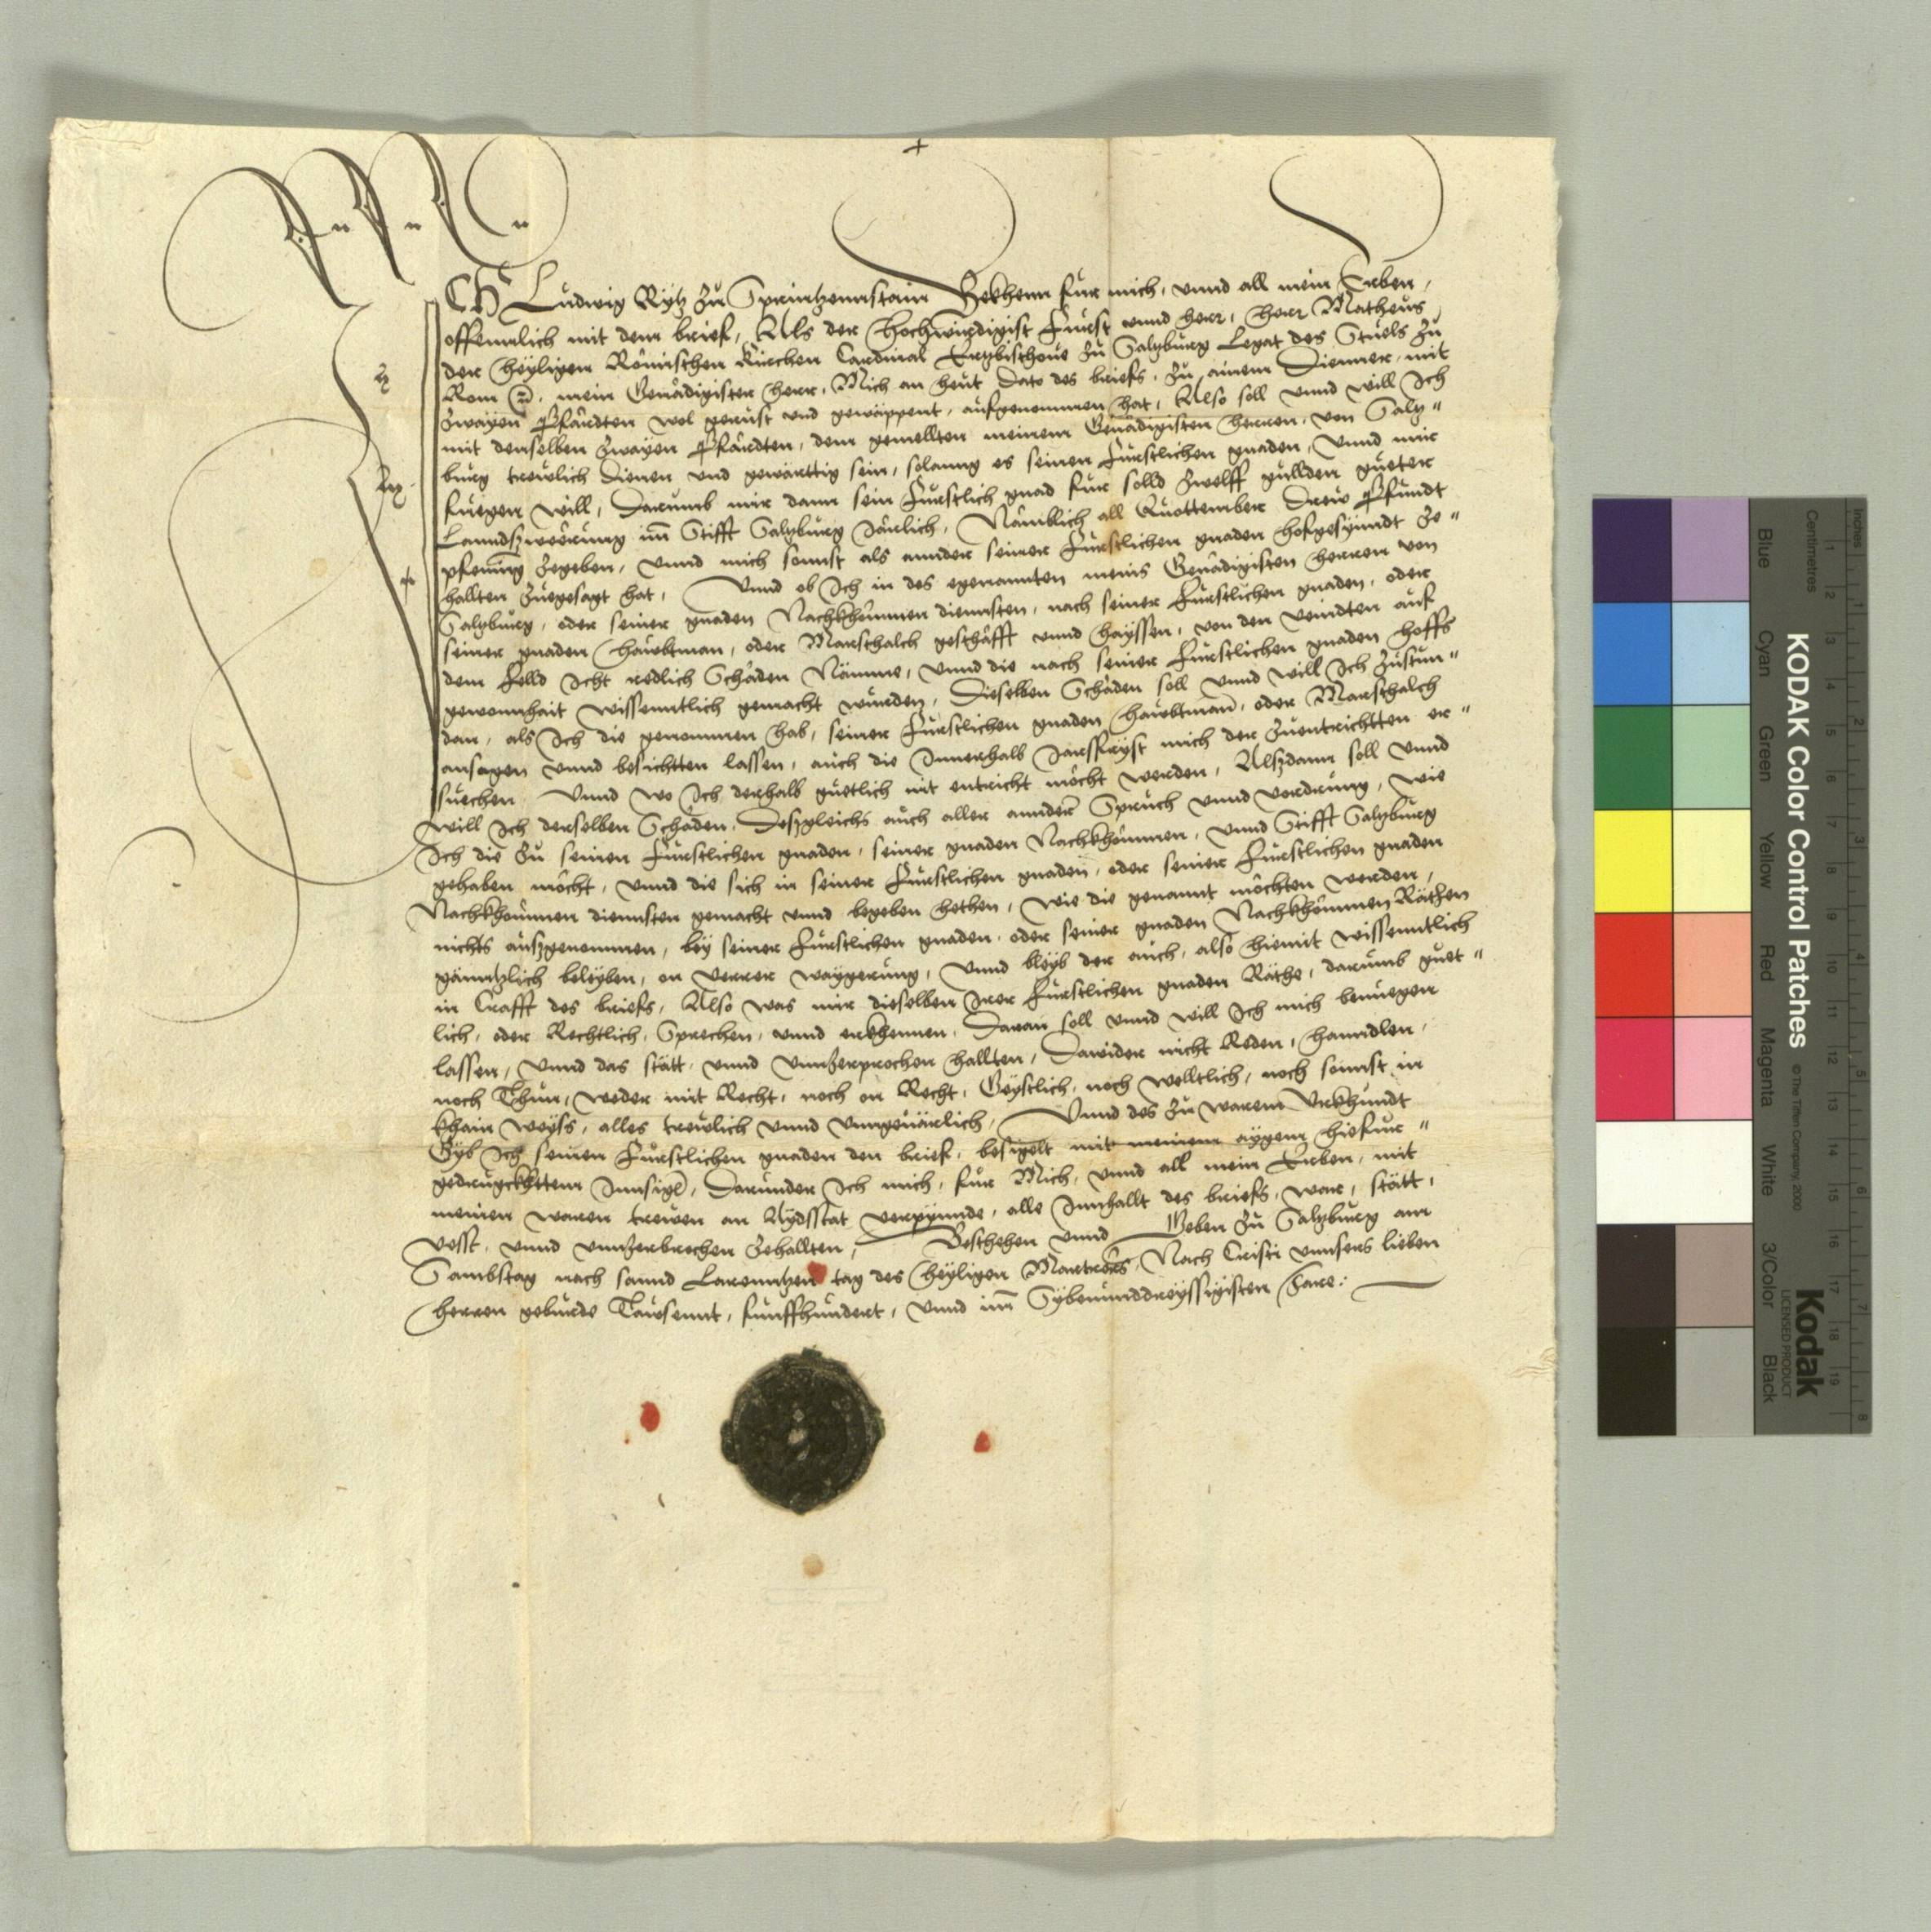 ICH Ludwig Rytz zu Sprintzenstain Bekhenn fur mich, vnnd all mein Erben,
offennlich mit dem brief, Als der Hochwirdigist Furst vnnd herr, herr Matheus,
der heyligen Römischen Kirchen Cardinal Ertzbischoue zu Saltzburg Legat des Stuels zu
Rom etc. mein Genädigister herr, Mich an heut Dato des briefs, zu ainem Dienner, mit
zwayen Pfärdten wol gerust vnd gewäppent, aufgenommen hat, Also soll vnnd will Ich
mit denselben zwayen Pfärdten, dem gemellten meinem Genädigisten herren, von Saltz"
burg trewlich dienen vnd gewärttig sein, solanng es seinen Furstlichen gnaden, vnnd mir
fuegen will, Darumb mir dann sein Furstlich gnad fur solld zwelff gullden gueter
Lanndszweerung im Stifft Saltzburg Järlich, Nämblich all Quottember Drew Pfundt
pfening zegeben, vnnd mich sonnst als annder seiner Furstlichen gnaden hofgesynndt ze"
hallten zuegesagt hat, Vnnd ob Ich in des egenannten meins Genädigisten herren von
Saltzburg, oder seiner gnaden Nachkhommen diennsten, nach seiner Furstlichen gnaden, oder
seiner gnaden haubtman, oder Marschalch geschäfft vnnd hayssen, von den veindten auf
dem felld icht redlich Schäden Nämme, vnnd die nach seiner Furstlichen gnaden hoffs
gewonnhait wissenntlich gemacht wurden, Dieselben Schäden soll vnnd will Ich zustun"
dan, als Ich die genommen hab, seiner Furstlichen gnaden haubtman, oder Marschalch
ansagen vnnd besichtten lassen, auch die Innerhalb Jarssfryst mich der zuentrichtten er"
suechen Vnnd wo Ich derhalb guetlich nit entricht möcht werden, Alszdann soll vnnd
will Ich derselben Schäden, Deszgleichs auch aller annder Spruch vnnd vordrung, wie
Ich die zu seinen Furstlichen gnaden, seiner gnaden Nachkhommen, vnnd Stifft Saltzburg
gehaben möcht, vnnd die sich in seiner Furstlichen gnaden, oder seiner Furstlichen gnaden
Nachkhommen diennsten gemacht vnnd begeben hethen, wie die genannt möchten werden,
nichts auszgenommen, bey seiner Furstlichen gnaden, oder seiner gnaden Nachkhommen Räthen
gänntzlich beleyben, on verrer waygerung, Vnnd bleyb der auch, also hiemit wissenntlich
in Crafft des briefs, Also was mir dieselben Irer Furstlichen gnaden Räthe, darumb guet"
lich, oder Rechtlich, Sprechen, vnnd erkhennen, Daran soll vnnd will Ich mich benuegen
lassen, vnnd das stätt, vnnd vnnzerprochen hallten, Dawider nicht Reden, hanndlen,
noch Thun, weder mit Recht, noch on Recht, Geystlich, noch welltlich, noch sonnst in
khain weyss, alles trewlich vnnd vnngeuärlich, Vnnd des zu warem Vrkhundt
Gyb Ich seinen Furstlichen gnaden den brief, besigelt mit meinem aygem hiefur"
gedrugckhttem Innsigl, Darunder Ich mich, fur Mich, vnnd all mein Erben, mit
meinen waren trewen an Aydsstat verpynnde, alle Innhallt des briefs, war, stätt,
vesst, vnnd vnnzerbrochen zehallten, Beschehen vnnd Geben zu Saltzburg am
Sambstag nach sannd Larenntzen tag des heyligen Martrers, Nach Cristi vnnsers lieben
herren geburde Tausennt, funffhundert, vnnd im Sybenunddreyssigisten Jare:
KODAK Color Control Patches
© The Tiffen Company, 2000
Kodak
LICENSED PRODUCT
Inches
Centimetres
Blue Cyan Green Yellow Red Magenta White 3/Color Black